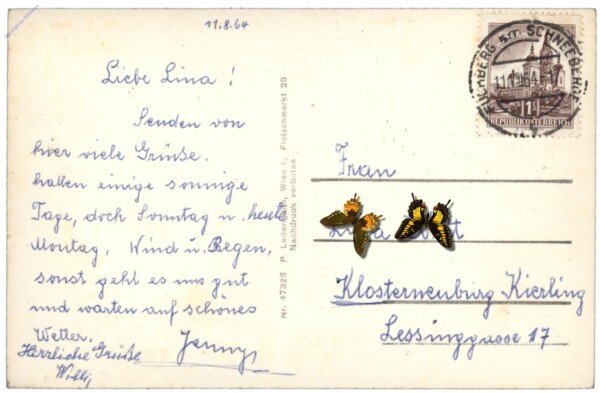 11.8.64
Liebe Lina!
Senden von
hier viele Grüße.
hatten einige sonnige
Tage, doch Sonntag u. heute
Montag, Wind u. Regen,
sonst geht es uns gut
und warten auf schönes
Wetter.
Jenny
Herrliche Grüße
Willi
Nr. 47325 P. Ledermann, Wien I., Fleischmarkt 20
Nachdruck verboten
SCHNEEBERG
1S
REPUBLIK ÖSTERREICH
Frau
Klosterneuburg Kierling
Lessinggasse 17